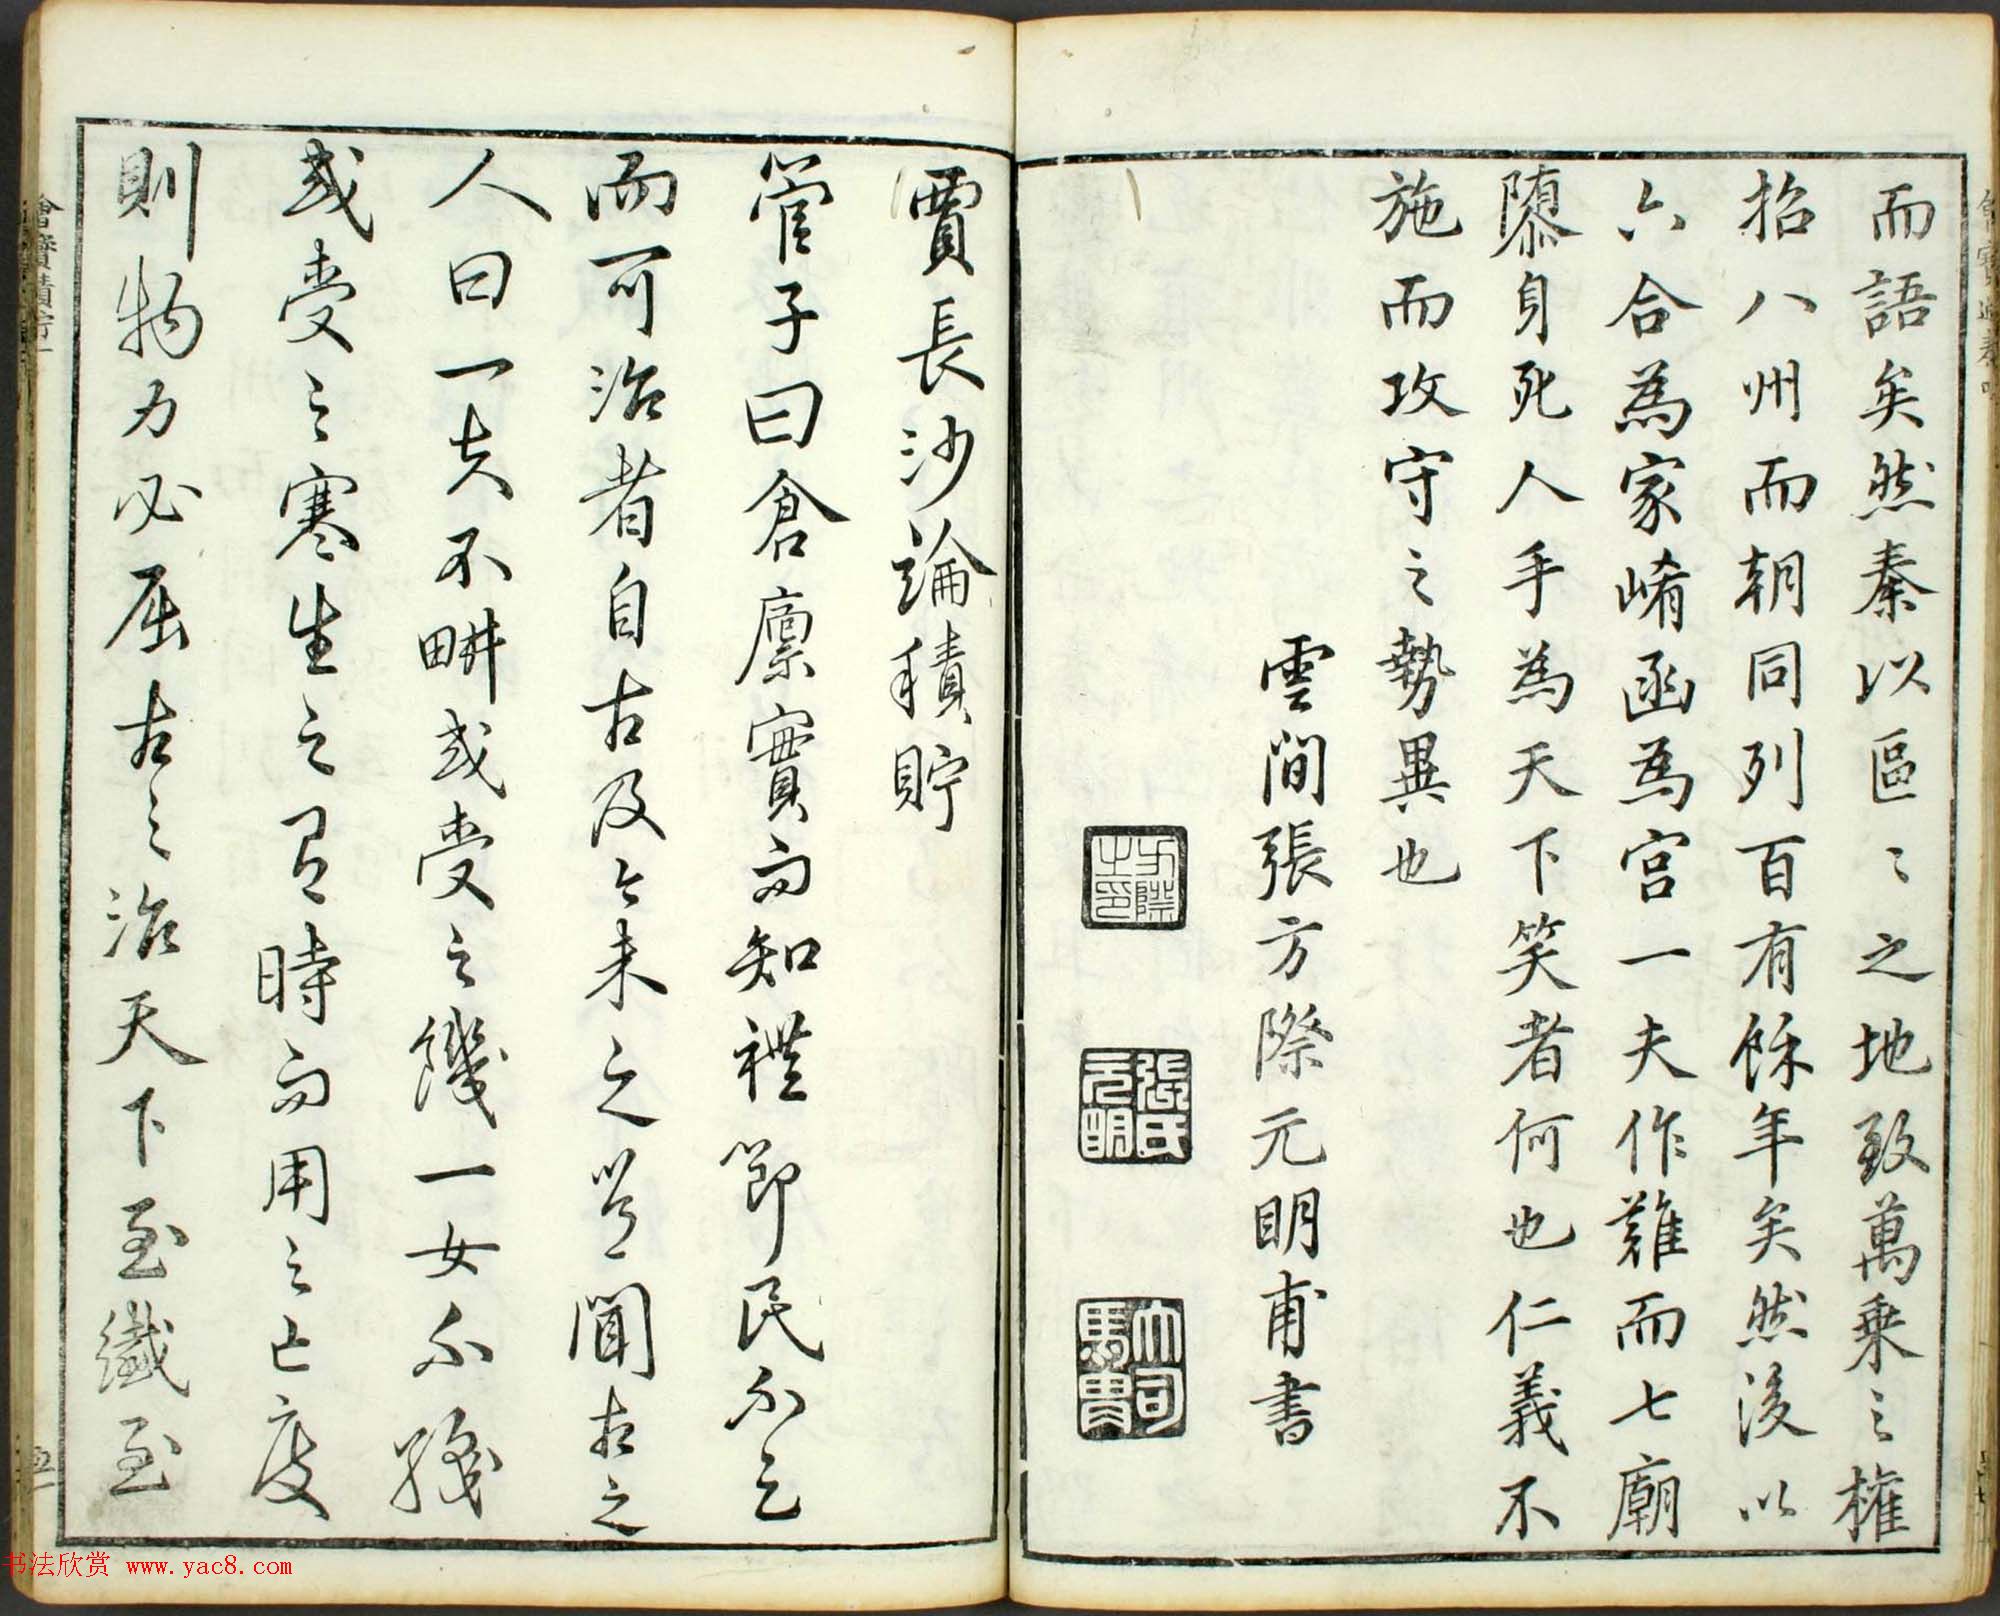 而語矣然秦以區〻之地致萬乗之權
招八州而朝同列百有餘年矣然後以
六合為家崤函為宮一夫作難而七廟
隳身死人手為天下笑者何也仁義不
施而攻守之勢異也
雲間張方際元明甫書
方際之印
張氏元明
大司馬胄
賈長沙論積貯
管子曰倉廩實而知禮節民不足
而可治者自古及今未之嘗聞古之
人曰一夫不畊或受之饑一女不織
或受之寒生之有時而用之亡度
則物力必屈古之治天下至纖至
书法欣赏 www.yac8.com